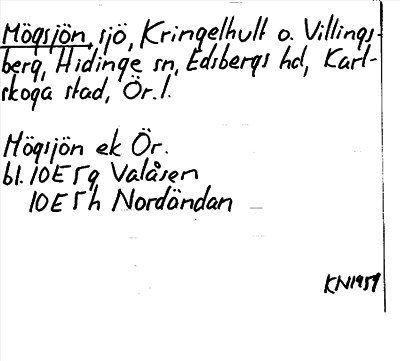 Mögsjön, sjö, Kringelhult o. Villings-
berg, Hidinge sn, Edsbergs hd, Karl-
skoga stad, Ör. l.
Mögsjön ek Ör.
bl. 10E 5g Valåsen
10E 5h Nordöndan
KN1959